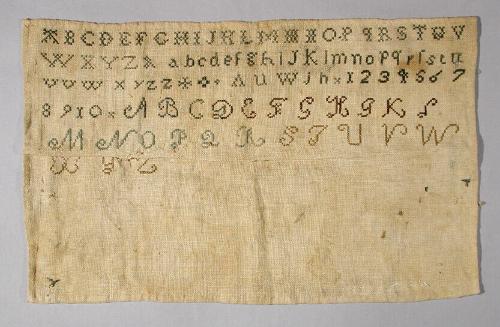 A B C D E F G H I J K L M N O P Q R S T U V
W X Y Z & a b c d e f g h i J K l m n o p q r ſ s t u
v u w x y z z * A U W j h × 1 2 3 4 5 6 7
8 9 10 × A B C D E F G H I K L
M N O P Q R S T U V W
X Y Z